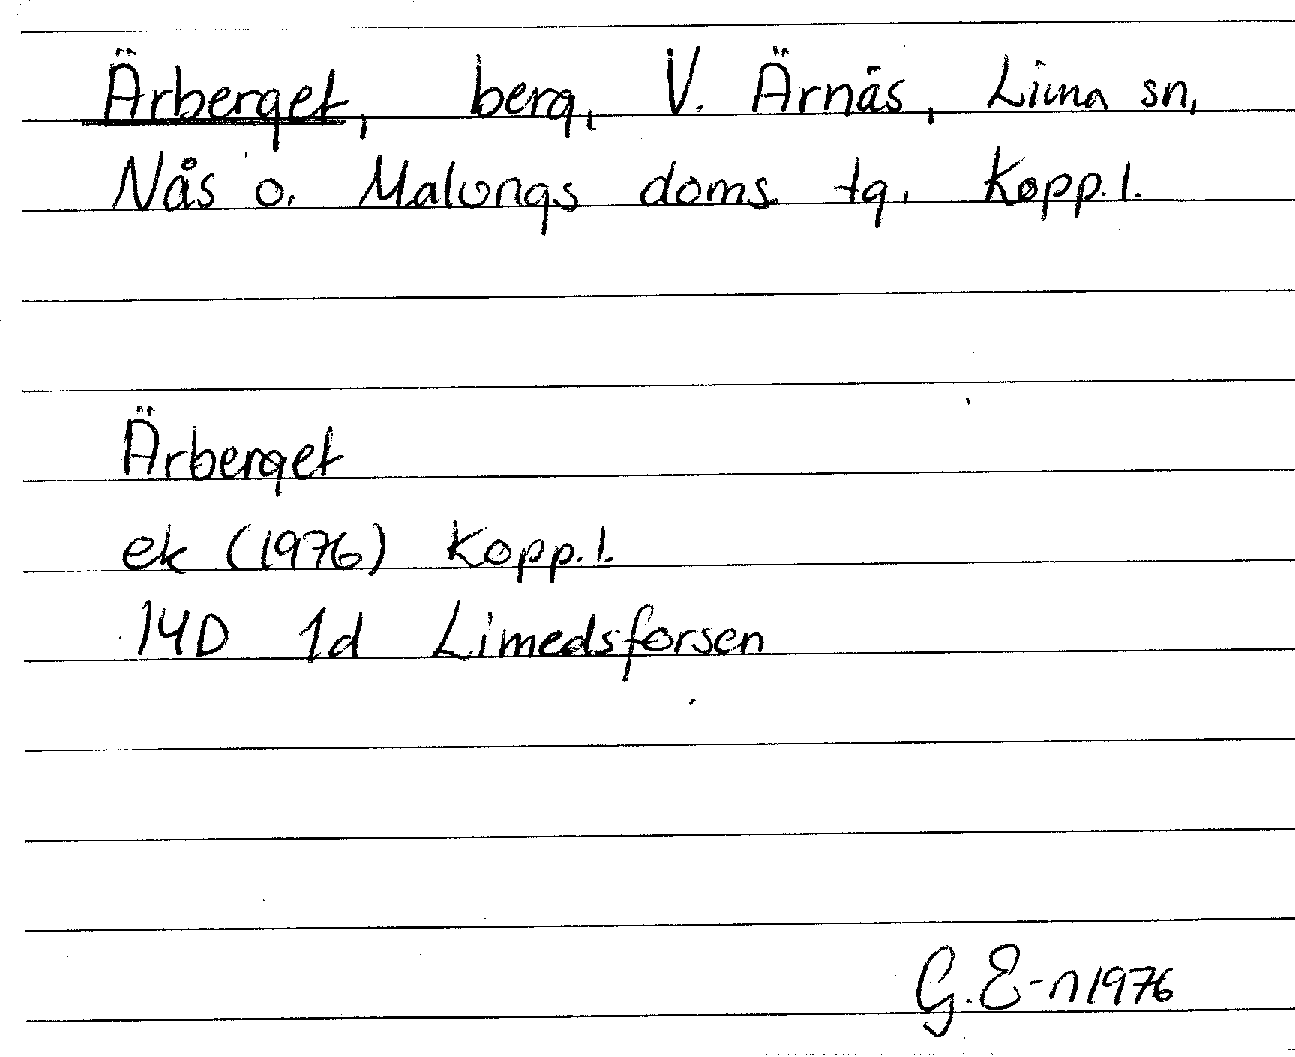 Ärberget, berg, V. Ärnäs, Lima sn,
Nås o. Malungs doms. tg. Kopp.l.
Ärberget
ek (1976) Kopp.l.
14D 1d Limedsforsen
G.E-n 1976